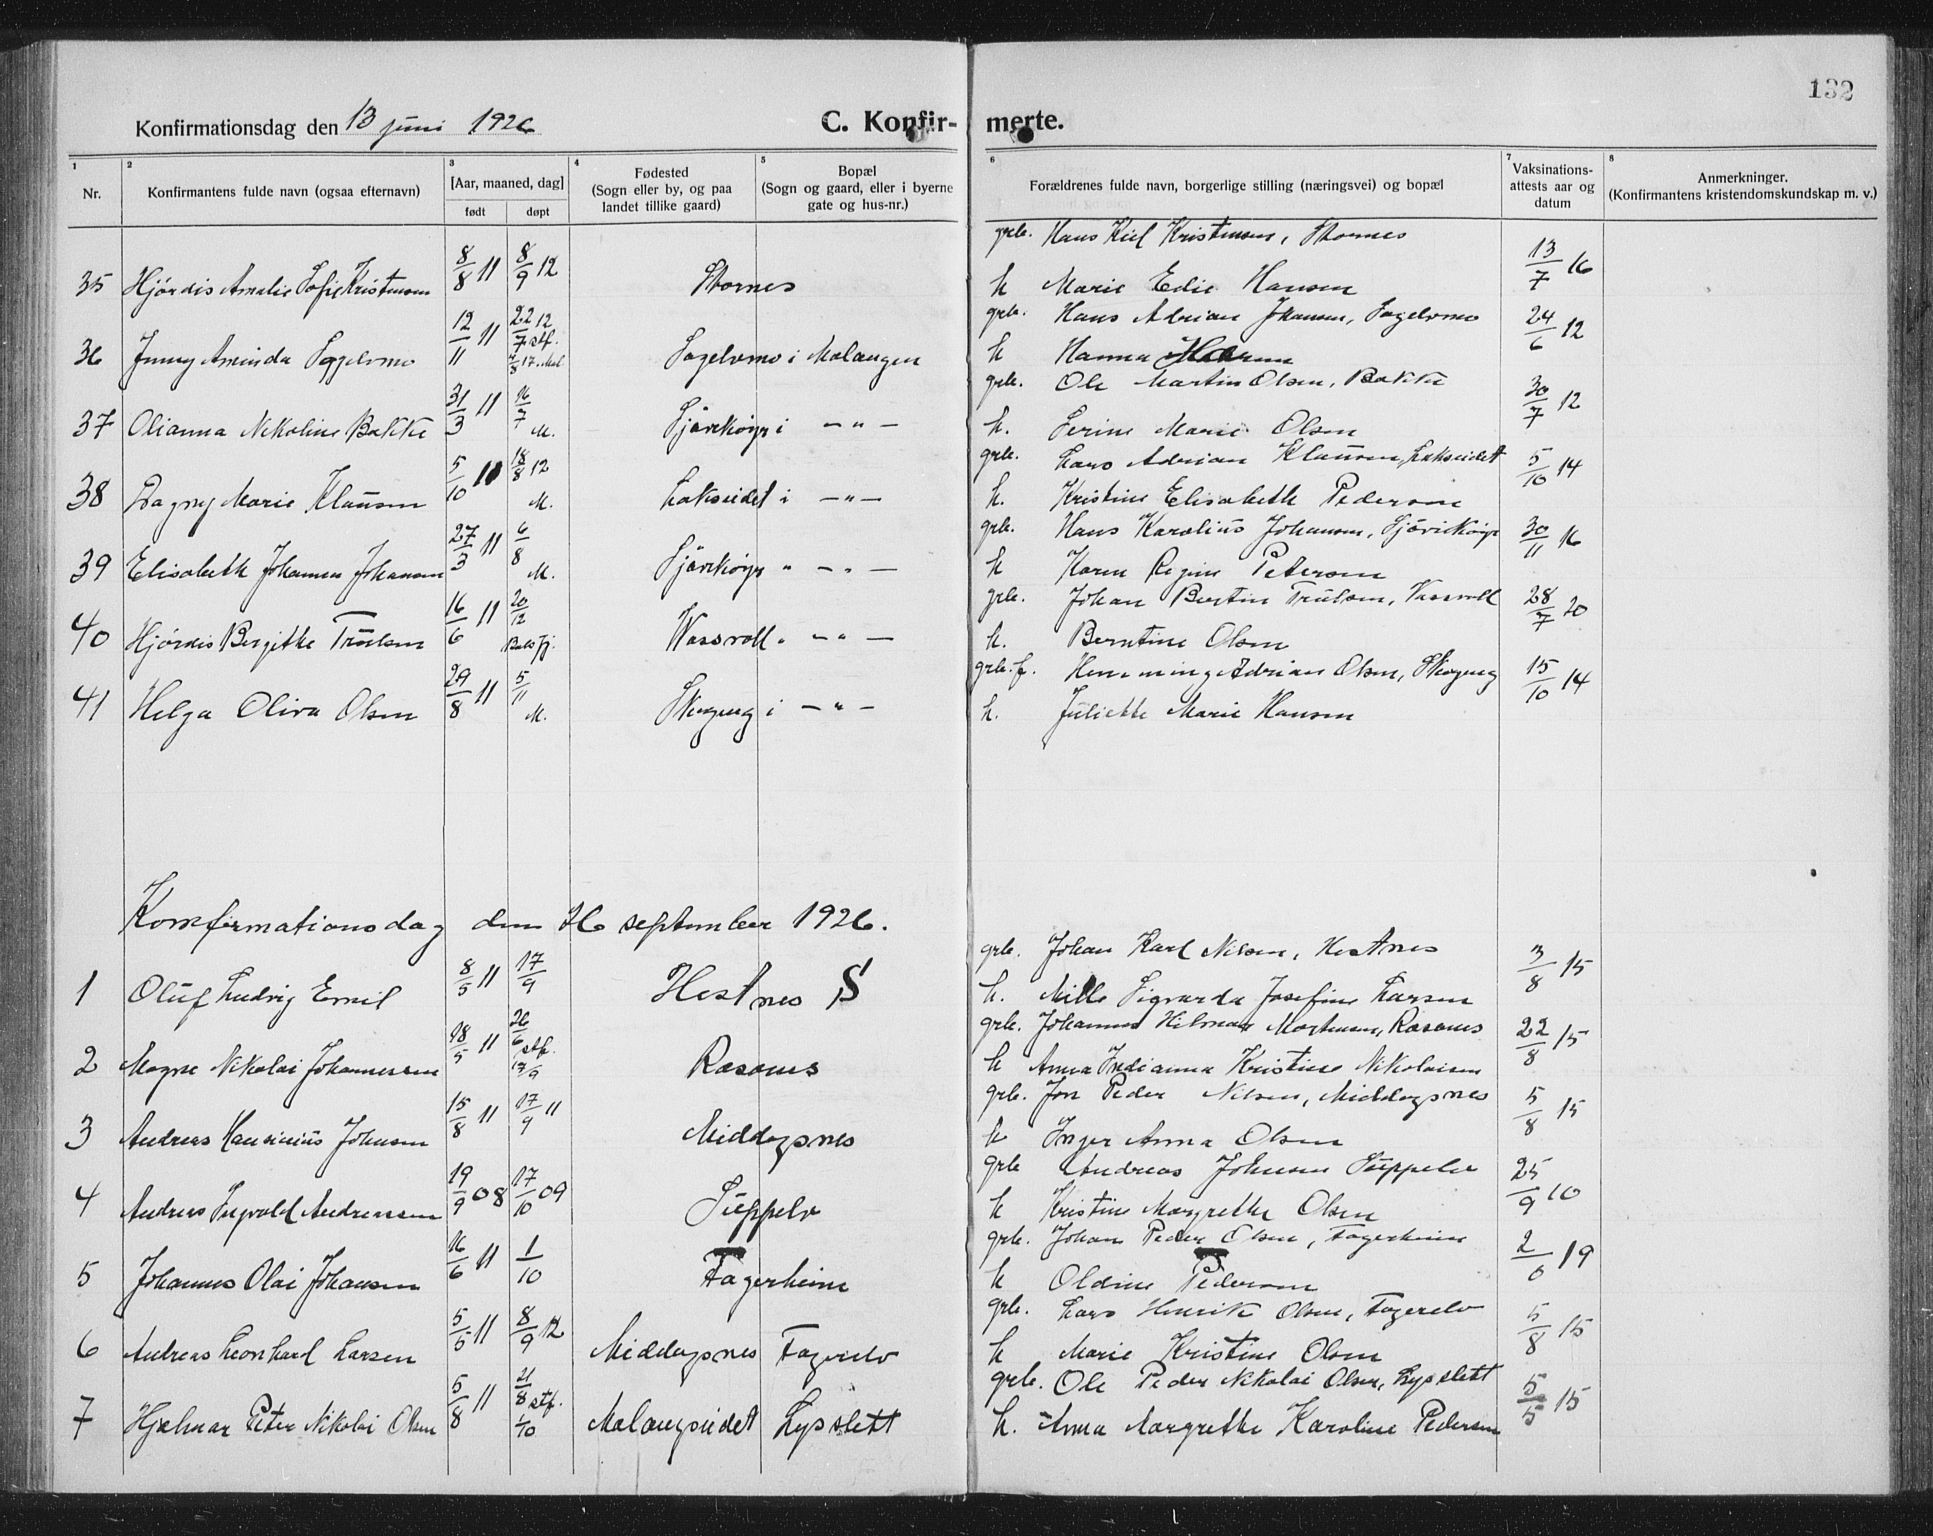 132
Konfirmationsdag den 13 juni 1926
C. Konfir- merte.
1 2 3 4 5 6 7 8
Nr.
Konfirmantens fulde navn (ogsaa efternavn)
[Aar, maaned, dag]
født døpt
Fødested
(Sogn eller by, og paa
landet tillike gaard)
Bopæl
(Sogn og gaard, eller i byerne
gate og hus-nr.)
Forældrenes fulde navn, borgerlige stilling (næringsvei) og bopæl
Vaksinations-
attests aar og
datum
Anmerkninger.
(Konfirmantens kristendomskundskap m. v.)
grb. Hans Kiil Kristensen, Stornes
35 Hjördis Amalie Sofie Kristensen 8/8 11 8/9 12 Stornes h Marie Edie Hansen 13/7 16
grb. Hans Adrian Johansen, Sagelvmo
36 Jenny Aminda Sagelvmo 12/11 11 22/7 12 stf. Sagelvmo i Malangen h Hanna 24/6 12
grb. Ole Martin Olsen, Bakke
37 Olianna Nikoline Bakke 31/3 11 16/7 M. Sjåvikøyr i — " — h. Serine Marie Olsen 30/7 12
grb. Lars Adrian Klausen, Lakseidet
38 Dagny Marie Klausen 5/10 11 18/8 12 M. Lakseidet i — " — h. Kristine Elisabeth Pedersen 5/10 14
grb. Hans Karolius Johansen, Sjåvikøyr
39 Elisabeth Johanna Johansen 27/3 11 6/8 M. Sjåvikøyr " — " — h Karen Regine Petersen 30/11 16
grb. Johan Bertin Trulsen, Vassvoll
40 Hjördis Bergitte Trulsen 16/6 11 20/12 Balsfj. Wassvoll " — " — h. Berntine Olsen 28/7 20
grb. f. Henning Adrian Olsen, Skogeng
41 Helga Oliva Olsen 29/8 11 5/11 M. Skogeng i — " — h. Juliette Marie Hansen 15/10 14
Konfirmationsdag den 26 september 1926.
grb. Johan Karl Nilsen, Hestnes
1 Oluf Ludvig Emil 8/5 11 17/9 Hestnes S h. Mille Sigvarda Josefine Larsen 3/8 15
grb. Johannes Hilmar Mortensen, Rasanes
2 Magne Nikolai Johannessen 18/5 11 26/6 stf. 17/9 Rasanes h Anna Indianna Kristine Nikolaisen 22/8 15
grb. Jon Peder Nilsen, Middagsnes
3 Andreas Hansinius Johnsen 15/8 11 17/9 11 Middagsnes h Inger Anna Olsen 5/8 15
grb Andreas Johnsen Süppelv
4 Andreas Ingvald Andreassen 19/9 08 17/10 09 Süppelv h Kristine Margrethe Olsen 25/9 10
grb. Johan Peder Olsen, Fagerheim
5 Johannes Olai Johansen 16/6 11 1/10 Fagerheim h Oldine Pedersen 2/6 19
grb. Lars Henrik Olsen, Fagerelv
6 Andreas Leonhard Larsen 5/5 11 8/9 12 Middagsnes Fagerelv h Marie Kristine Olsen 5/8 15
grb. Ole Peder Nikolai Olsen, Lyslett
7 Hjalmar Peter Nikolai Olsen 5/8 11 21/8 stf. 1/10 Malangseidet Lyslett h. Anna Margrethe Karoline Pedersen 5/5 15